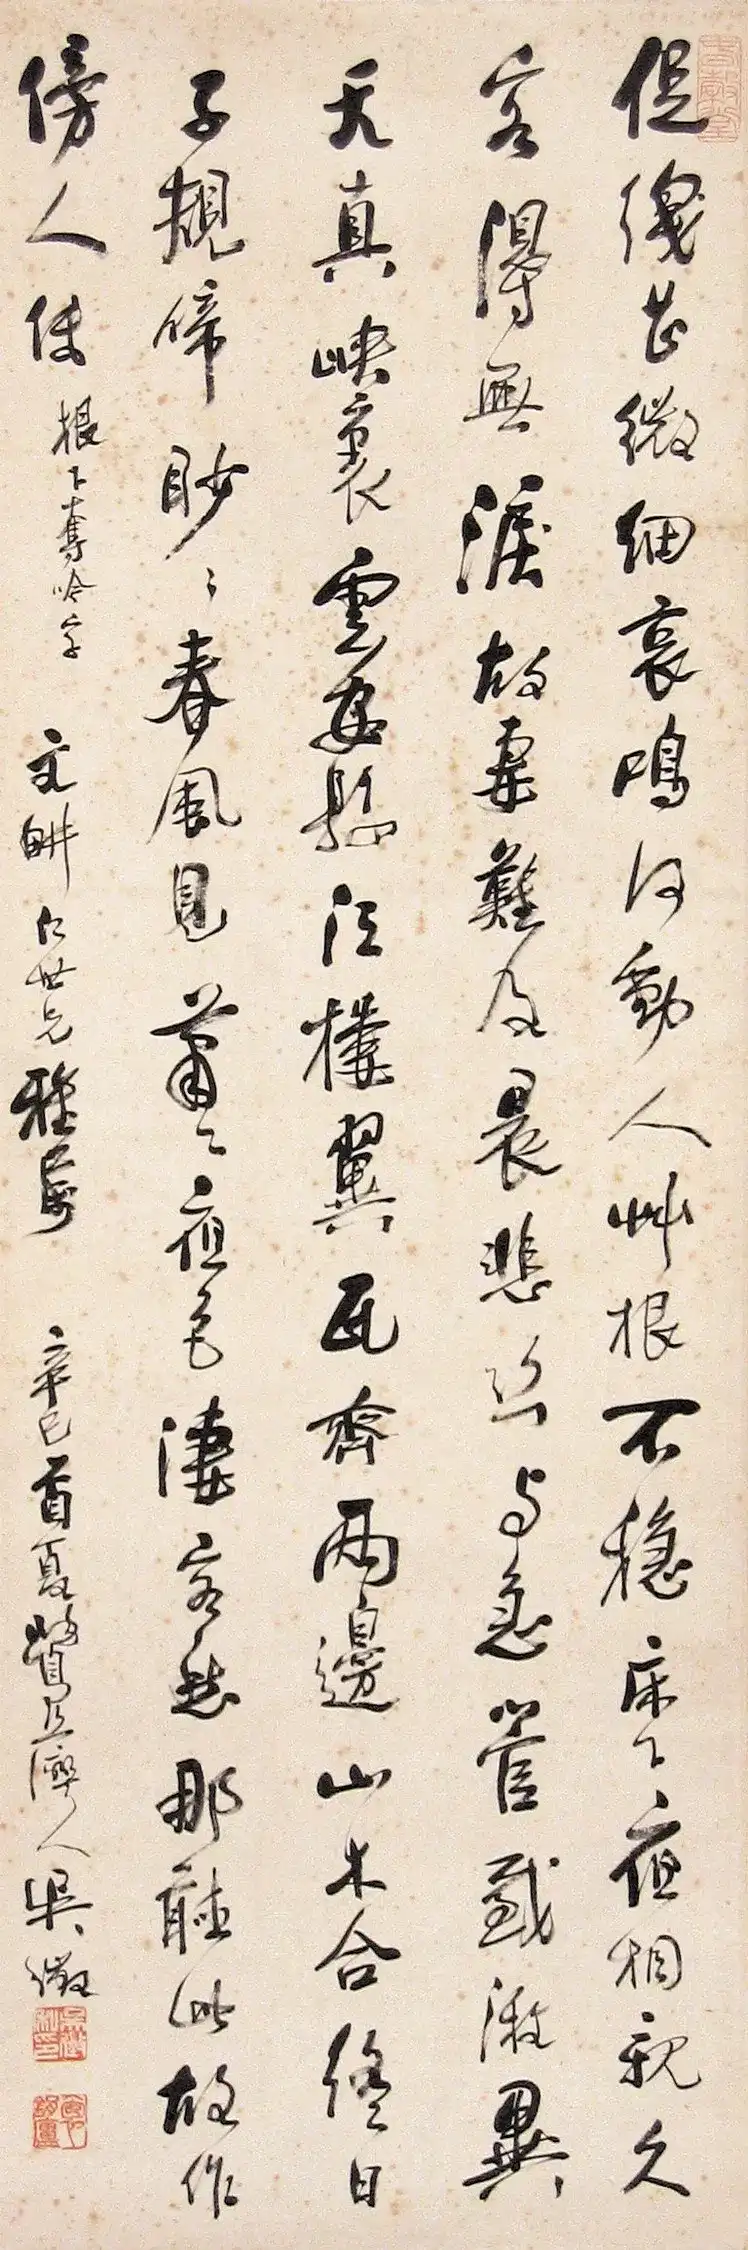 促織甚微細哀鳴何動人艸根不穩床下夜相親久
客得無淚故妻難及晨悲絲與急管感激異
天真峽裏雲安縣江樓翼瓦齊兩邊山木合終日
子規啼眇〻春風見蕭〻夜色淒客愁那聽此故作
傍人低 根下奪吟字 文畊仁世兄雅屬 辛巳首夏鷺絲灣人吳徵